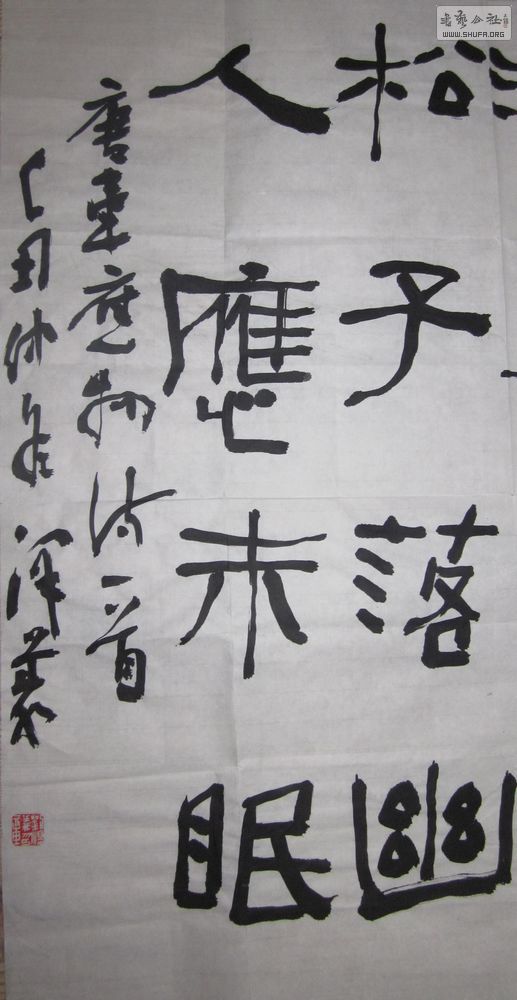 松子落幽
人應未眠
唐韋應物诗一首
己丑仲
书艺公社
WWW.SHUFA.ORG